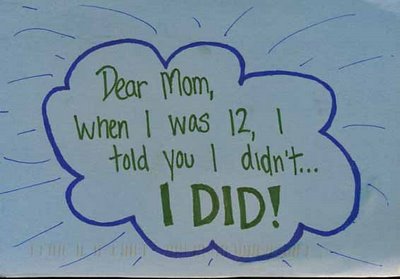 Dear Mom,
When I was 12, I
told you I didn't...
I DID!